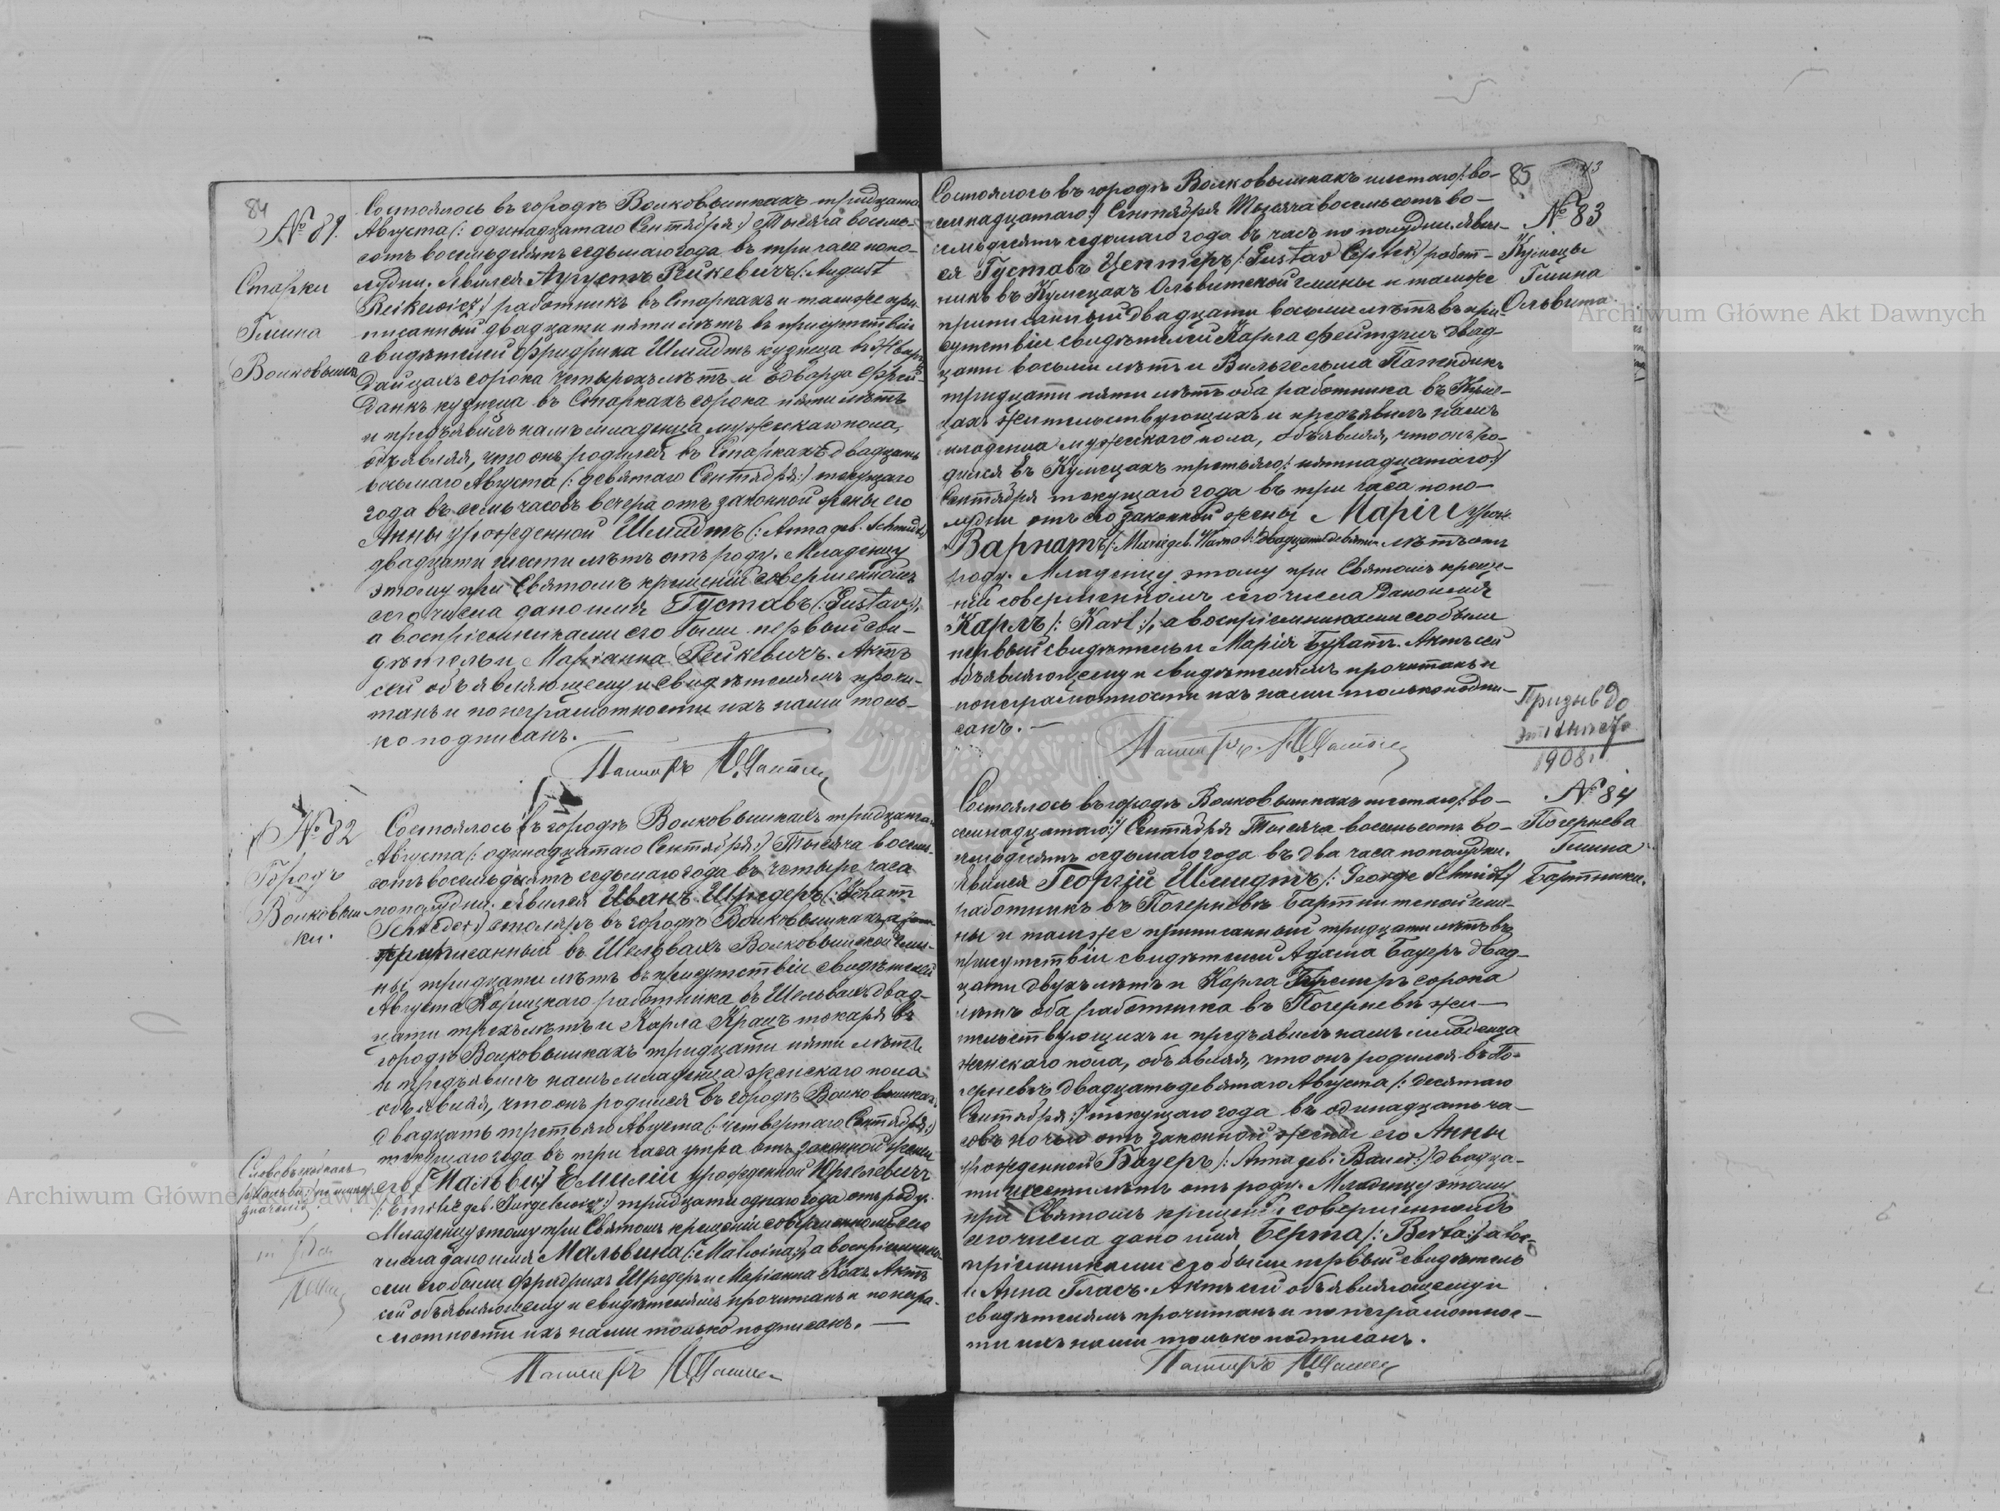 84
№ 81.
Старки
Гмина
Волковышки
Состоялось въ городѣ Волковышкахъ тридцатаго
Августа /: одинадцатаго Сентября :/ Тысяча восемь-
сотъ восемьдесятъ седьмаго года въ три часа попо-
лудни. Явился Августъ Рейкевичъ /: August
Reikewicz :/ работникъ въ Старкахъ и тамже при-
писанный двадцати пяти лѣтъ въ присутствіи
свидѣтелей Фридриха Шмидтъ кузнеца въ
сорока четырехъ лѣтъ и Эдварда
кузнеца въ Старкахъ сорока пяти лѣтъ
и предъявилъ намъ младенца мужскаго пола,
объявляя, что онъ родился въ Старкахъ двадцать
восьмаго Августа /: девятаго Сентября :/ текущаго
года въ часовъ вечера отъ законной жены его
Анны урожденной Шмидтъ /: Anna geb. Schmidt :/
двадцати шести лѣтъ отъ роду. Младенцу
этому при Святомъ крещеніи совершенномъ
сего числа дано имя Густавъ /: Gustav :/,
а воспріемниками его были первый сви-
дѣтель и Маріанна Рейкевичъ. Актъ
сей объявляющему и свидѣтелямъ прочи-
танъ и по неграмотности ихъ нами толь-
ко подписанъ.
Пасторъ
№ 82
Городъ
Волковыш-
ки.
Состоялось въ городѣ Волковышкахъ тридцатаго
Августа /: одинадцатаго Сентября :/ Тысяча восемь-
сотъ восемьдесятъ седьмаго года въ четыре часа
пополудни. Явился Иванъ Шредеръ /: Johann
Schreder :/ столяръ въ городѣ Волковышкахъ а
приписанный въ Шельвахъ Волковышской гми-
ны, тридцати лѣтъ въ присутствіи свидѣтелей
Августа Корицкаго работника въ Шельвахъ двад-
цати трехъ лѣтъ и Карла Крацъ токаря въ
городѣ Волковышкахъ тридцати пяти лѣтъ
и предъявилъ намъ младенца женскаго пола
объявляя, что онъ родился въ городѣ Волковышкахъ
двадцать третьяго Августа /: четвертаго Сентября :/
текущаго года въ три часа утра отъ законной жены
его /Мальвин/ Эмиліи урожденной Юргелевичъ
/: Emilie geb. :/ тридцати одного года отъ роду.
Младенцу этому при Святомъ крещеніи совершенномъ сего
числа дано имя Мальвина /: Malwina :/, а воспріемника-
ми его были Фридрихъ Шредеръ и Маріанна Кохъ. Актъ
сей объявляющему и свидѣтелямъ прочитанъ и по негра-
мотности ихъ нами только подписанъ. —
Пасторъ
85
43
№ 83
Кумецы
Гмина
Ольвита
Состоялось въ городѣ Волковышкахъ шестаго /: во-
семнадцатаго :/ Сентября Тысяча восемьсотъ во-
семьдесятъ седьмаго года въ часъ по полудни. Явил-
ся Густавъ Центеръ /: Gustav :/ работ-
никъ въ Кумецахъ Ольвитской гмины и тамже
приписанный двадцати восьми лѣтъ въ при-
сутствіи свидѣтелей Карла двад-
цати восьми лѣтъ и Вильгельма
тридцати пяти лѣтъ оба работника въ Куме-
цахъ жительствующихъ и предъявилъ намъ
младенца мужескаго пола, объявляя, что онъ ро-
дился въ Кумецахъ третьяго /: пятнадцатаго :/
Сентября текущаго года въ три часа попо-
лудни отъ его законной жены Маріи урож.
Варнатъ /: Maria geb. :/ двадцати девяти лѣтъ отъ
роду. Младенцу этому при Святомъ креще-
ніи совершенномъ сего числа дано имя
Карлъ /: Karl :/, а воспріемниками его были
первый свидѣтель и Марія Буратъ. Актъ сей
объявляющему и свидѣтелямъ прочитанъ и
по неграмотности ихъ нами только подпи-
санъ. —
Пасторъ
Призыв до
1908 г.
№ 84
Погернева
Гмина
Бартники.
Состоялось въ городѣ Волковышкахъ шестаго /: во-
семнадцатаго :/ Сентября Тысяча восемьсотъ во-
семьдесятъ седьмаго года въ два часа пополудни.
Явился Георгій Шмидтъ /: George Schmidt :/
работникъ въ Погерневѣ Бартникской гми-
ны и тамже приписанный тридцати лѣтъ въ
присутствіи свидѣтелей Адама Бауеръ двад-
цати двухъ лѣтъ и Карла сорока
лѣтъ оба работника въ Погерневѣ жи-
тельствующихъ и предъявилъ намъ младенца
женскаго пола, объявляя, что онъ родился въ По-
герневѣ двадцать девятаго Августа /: десятаго
Сентября :/ текущаго года въ одинадцать ча-
совъ ночью отъ законной жены его Анны
урожденной Бауеръ /: Anna geb. Bauer :/ двадца-
ти шести лѣтъ отъ роду. Младенцу этому
при Святомъ крещеніи совершенномъ
сего числа дано имя Берта /: Berta :/ а вос-
пріемниками его были первый свидѣтель
и Анна Гласъ. Актъ сей объявляющему и
свидѣтелямъ прочитанъ и по неграмотнос-
ти ихъ нами только подписанъ.
Пасторъ
Archiwum Główne Akt Dawnych
Archiwum Główne Akt Dawnych